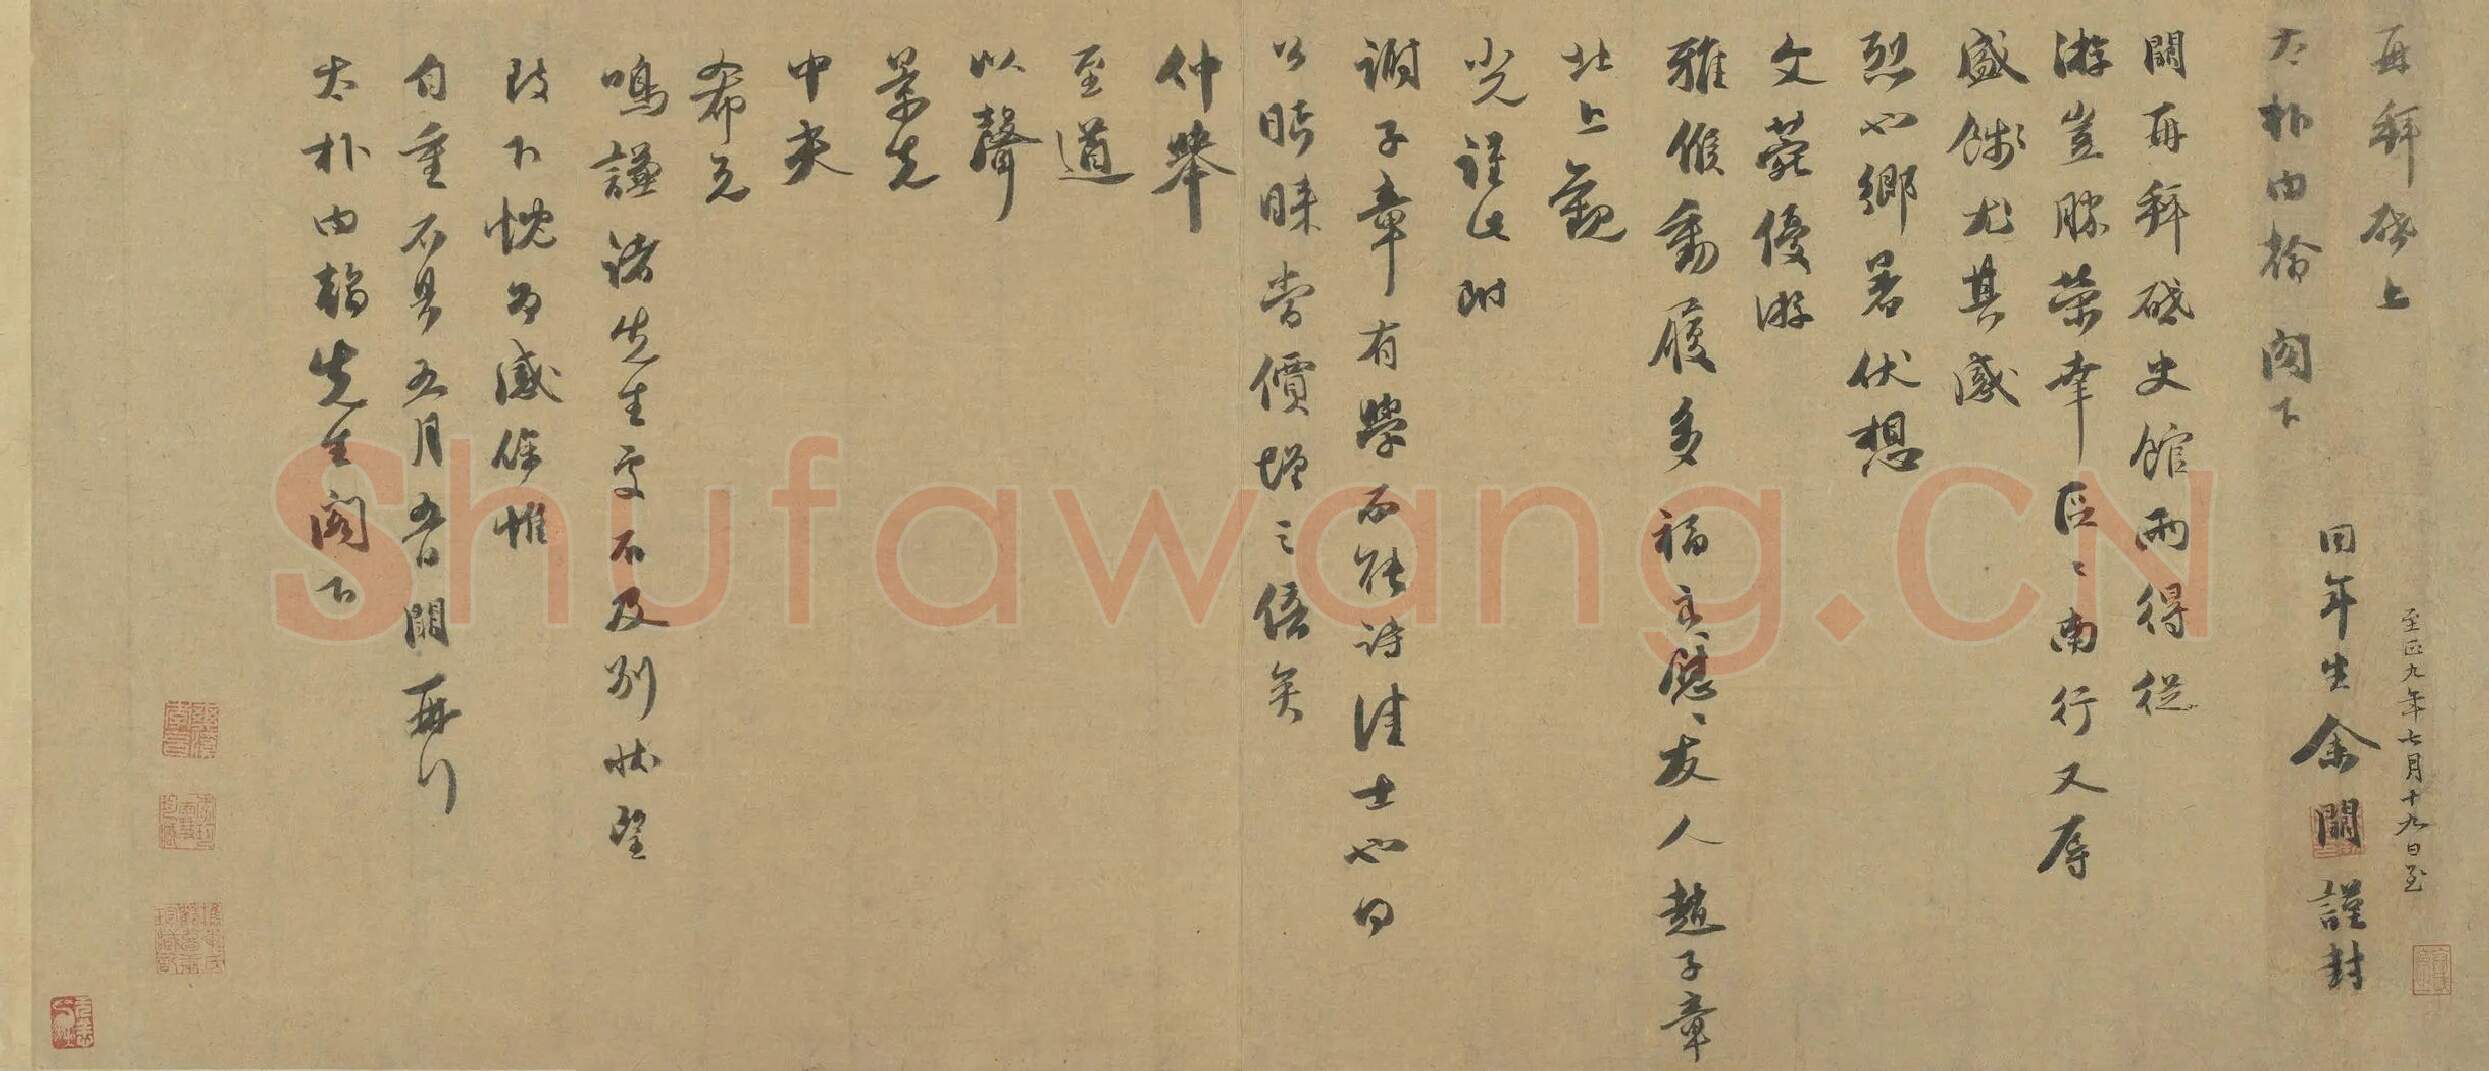 再拜啓上
太朴內翰 閣下
同年生余闕謹封
至正九年七月十九日至
闕再拜啓史館兩得從
游豈勝榮幸區區南行又辱
盛餞尤其感
烈也鄉暑伏想
文藝優游
雅候動履多福立慰立慰友人趙子章
北上觀
光謹此附
謝子章有學而能詩佳士也日
公時眯嘗價增之倍矣
仲舉
至道
以聲
景先
中夫
希元
鳴謙諸先生處不及別狀望
致下悅多感餘惟
自重不具五月五日闕再行
太朴內翰先生閣下
Shufawang.CN